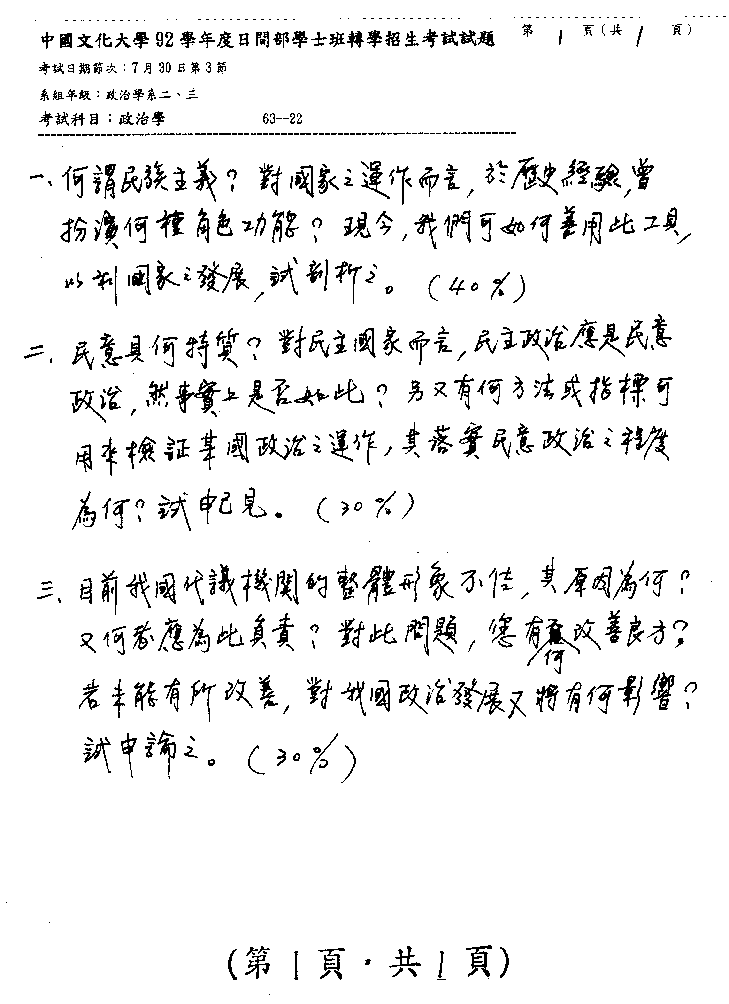 中國文化大學92學年度日間部學士班轉學招生考試試題 第 1 頁(共 1 頁)
考試日期節次：7月30日第3節
系組年級：政治學系二、三
考試科目：政治學 63--22
一、何謂民族主義？對國家之運作而言，於歷史經驗，曾
扮演何種角色功能？現今，我們可如何善用此工具，
以利國家之發展，試剖析之。(40%)
二、民意具何特質？對民主國家而言，民主政治應是民意
政治，然事實上是否如此？另又有何方法或指標可
用來檢証某國政治之運作，其落實民意政治之程度
為何？試申己見。(30%)
三、目前我國代議機關的整體形象不佳，其原因為何？
又何者應為此負責？對此問題，您有何改善良方？
若未能有所改善，對我國政治發展又將有何影響？
試申論之。(30%)
(第1頁‧共1頁)